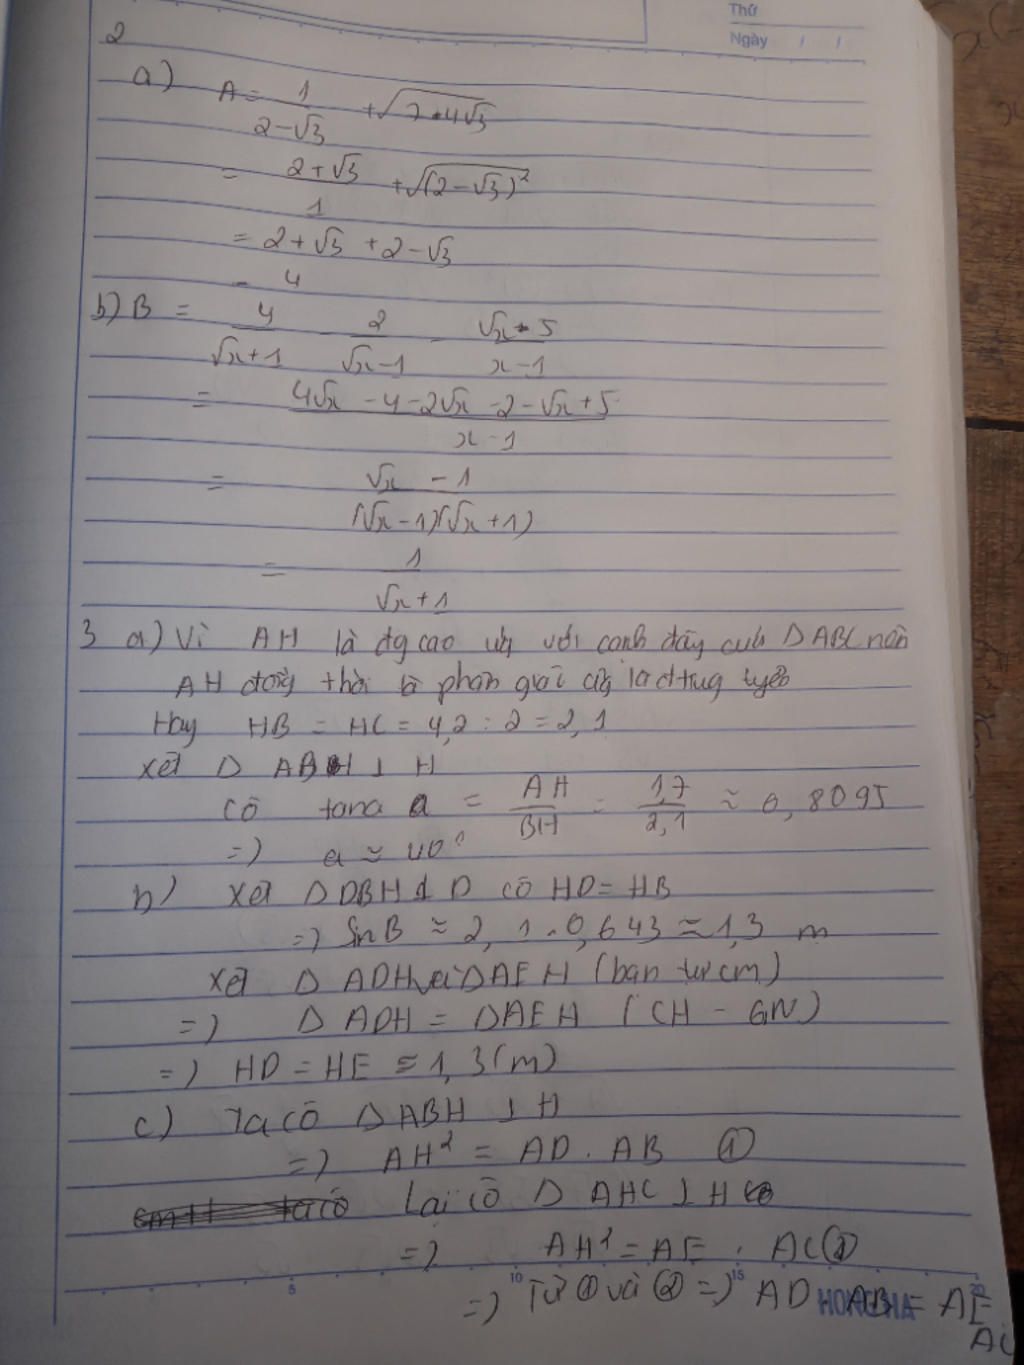 Thứ
Ngày / /
2
a) A = 1/(2-√3) + √(7-4√3)
= (2+√3)/1 + √((2-√3)²)
= 2+√3 + 2-√3
= 4
b) B = 4/(√x+1) - 2/(√x-1) - (√x-5)/(x-1)
= (4√x - 4 - 2√x - 2 - √x + 5)/(x-1)
= (√x - 1)/((√x-1)(√x+1))
= 1/(√x+1)
3 a) Vì AH là đg cao ứg với cạnh đáy của Δ ABC nên
AH đồng thời là phân giác cũg là đ trug tuyến
Hay HB = HC = 4,2 : 2 = 2,1
xét Δ ABH ⊥ H
có tana a = AH/BH = 1,7/2,1 ≈ 0,8095
=) a ≈ 40°
b) xét Δ DBH ⊥ D có HD = HB
=) SinB ≈ 2,1.0,643 ≈ 1,3 m
xét Δ ADH và Δ AEH (bạn tự cm)
=) Δ ADH = Δ AEH (CH - GN)
=) HD = HE ≈ 1,3 (m)
c) Ta có Δ ABH ⊥ H
=) AH² = AD . AB ①
Lại có Δ AHC ⊥ H
=) AH² = AE . AC ②
=) Từ ① và ② =) AD . AB = AE
AC
5 10 15 20
HONG HA